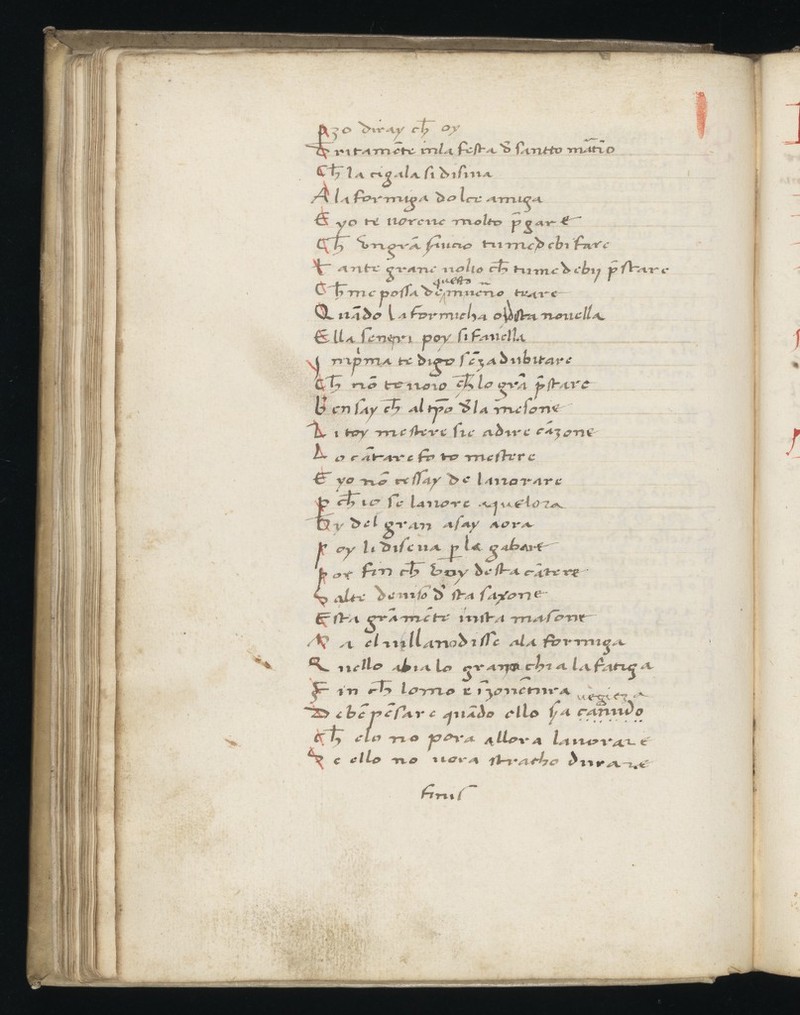 Azo diray ch̄ oy
Dritamēte inla festa đ santto matīo
Ch̄ la cigala si disiua
A la formiga dolce amiga
E yo te uoreue molto p̄gare
Ch̄ vngrā seruicio tu me debi fare
Tante grane uolio ch̄ tu me debij p̄stare
Ch̄ me possa de questo inuerno trare
Quādo la formicha oldista nouella
Ella seneri poy si fauella
In p̄ma te digo sēza dubitare
Ch̄ nō te uoio ch̄ lo grā p̄stare
Ben say ch̄ al tp̄o đla mesone
Li toy mestere sie adire cāzone
Lo cātare fo to mestere
E yo nō cessay de lauorare
p ch̄ io se lauore aquelora
Hy del gran asay aora
Poy li diseua p la gabare
Por fin ch̄ voy đsta cātere
Salte đ sta saxone
Esta grāmēte insta masone
Ma el uillano disse ala formiga
Quello abia lo grano chi a la fatiga
Fin ch̄ lomo e ī zouētura
Debē pēsare quādo ello sya canudo
uegieza
Ch̄ elo no pora allora lauorare
Se ello no uora stracho durare
finis